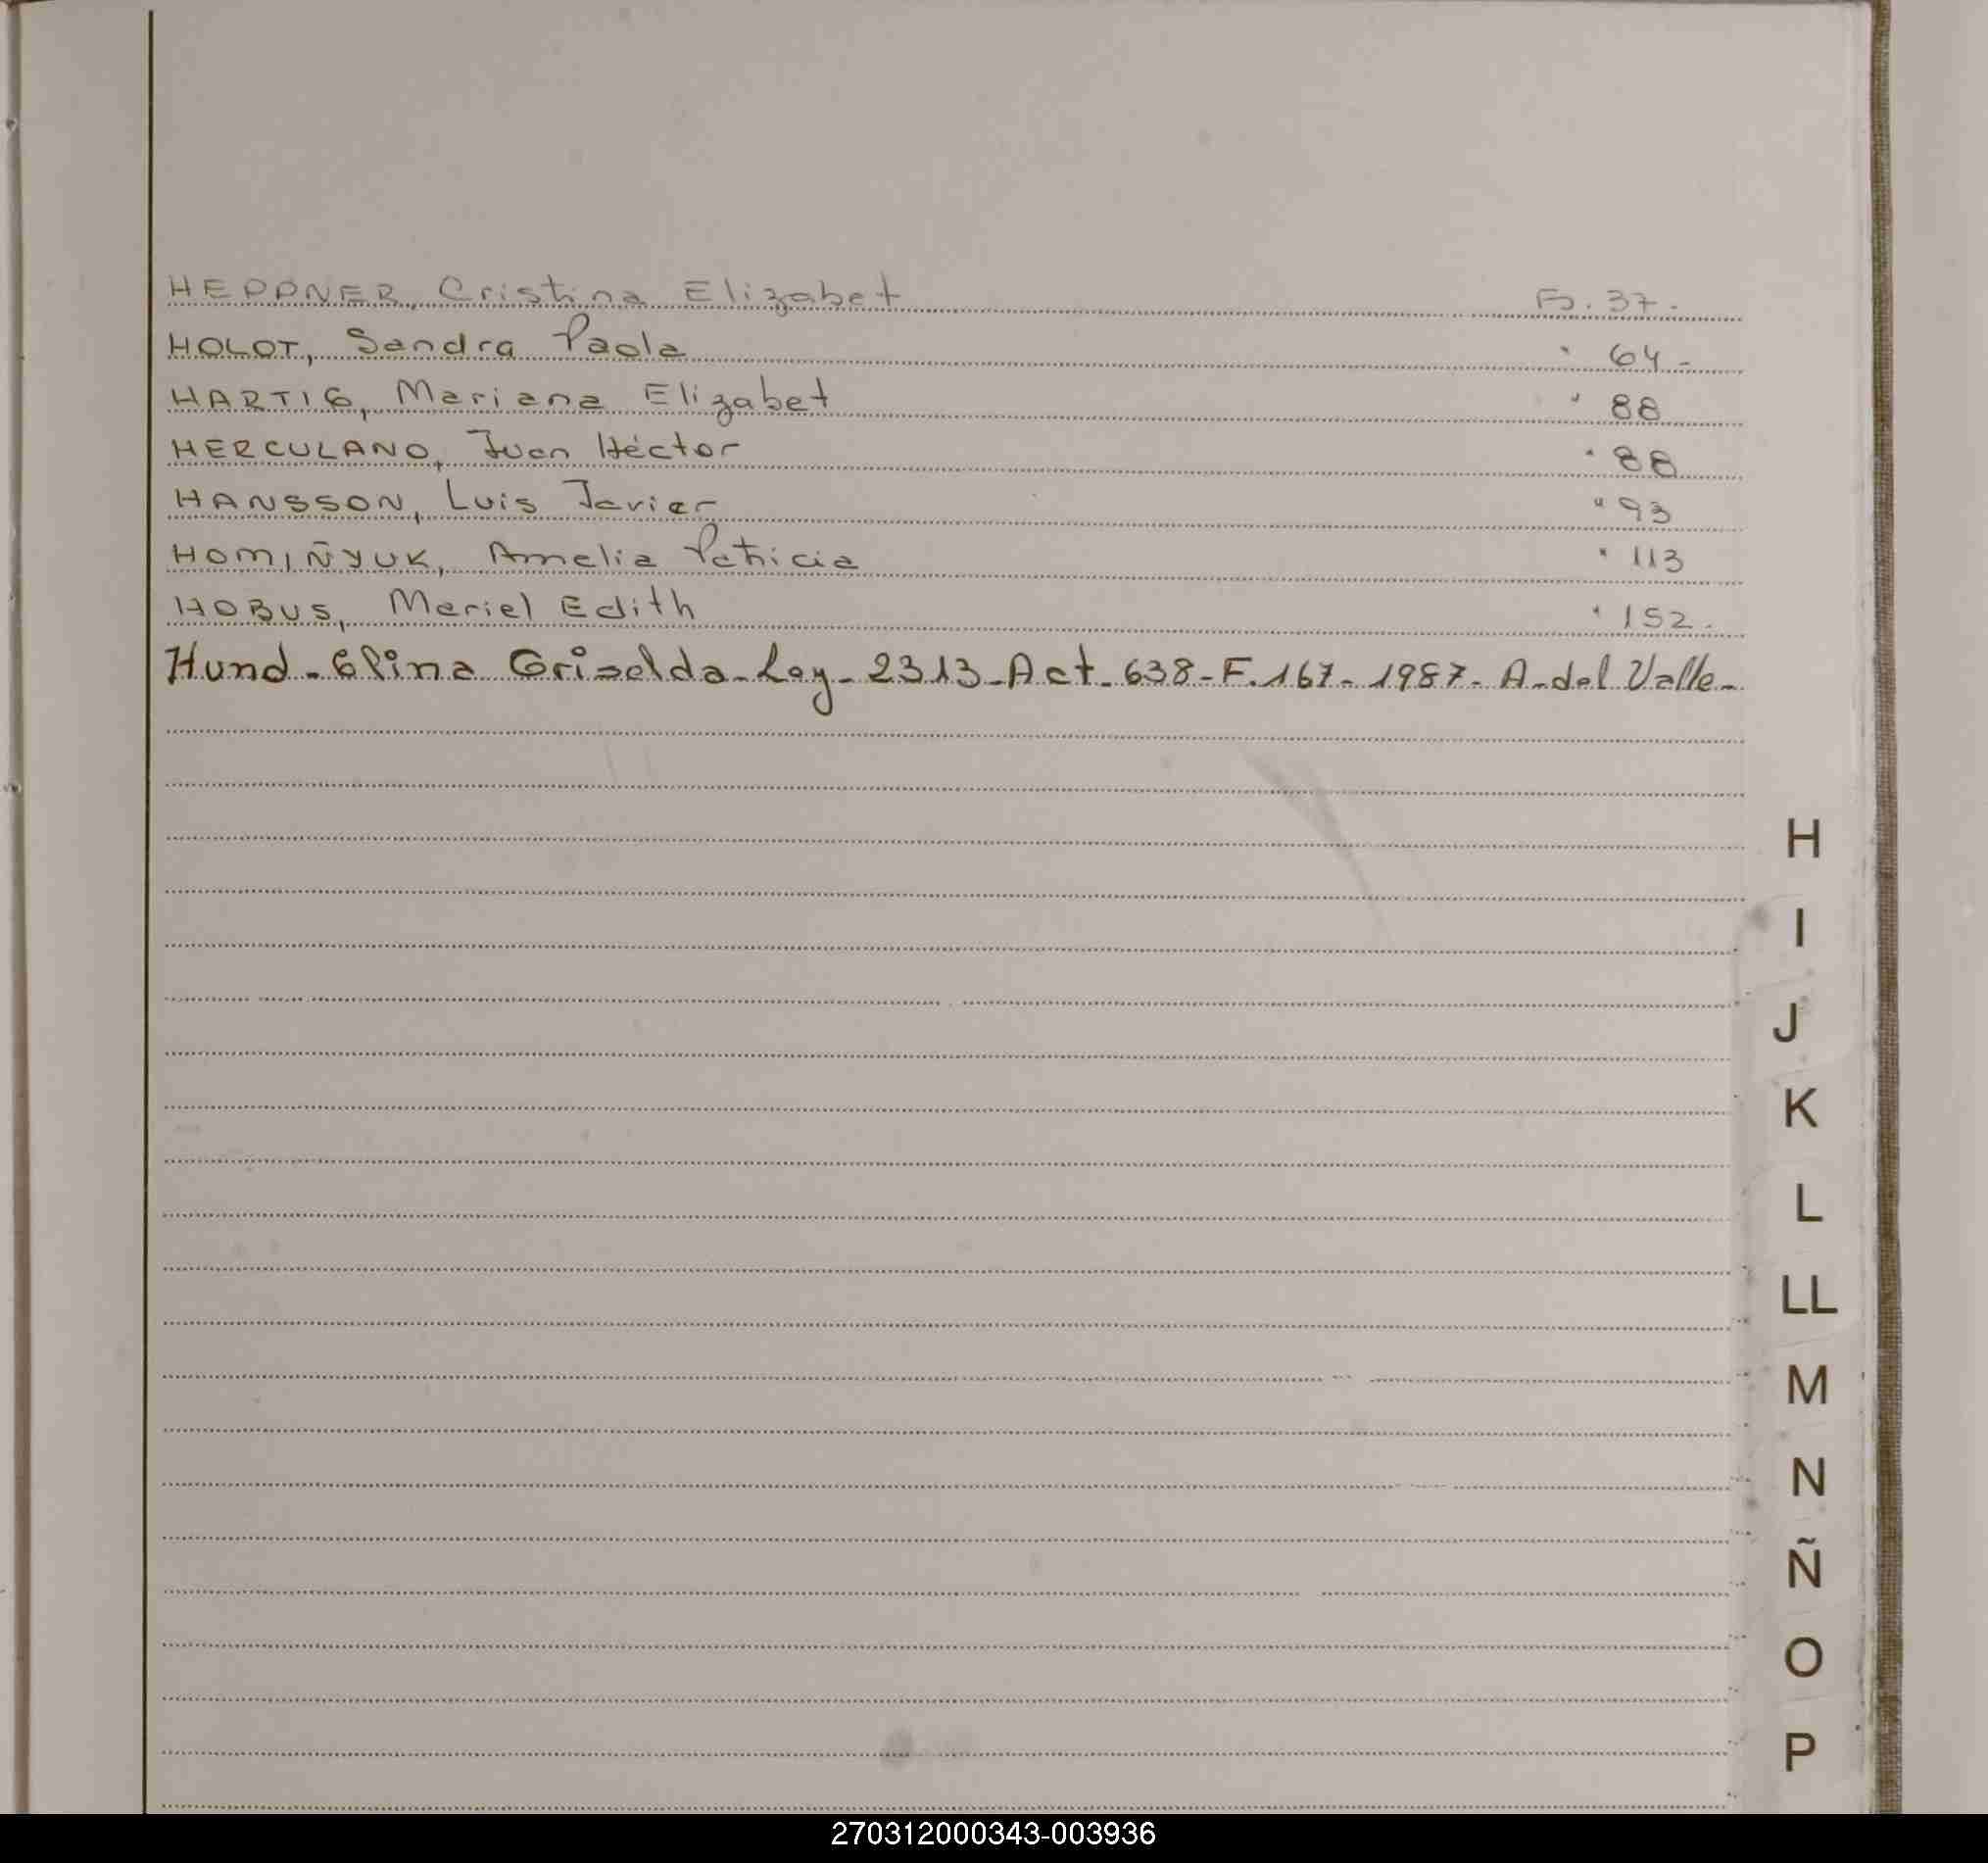 HEPPNER, Cristina Elizabet Fo. 37.
HOLOT, Sandra Paola " 64-
HARTIG, Mariana Elizabet " 88
HERCULANO, Juan Héctor " 88
HANSSON, Luis Javier " 93
HOMIÑYUK, Amelia Patricia " 113
HOBUS, Mariel Edith " 152.
Hund-Elina Griselda-Ley-2313-Act-638-F.167-1987-A-del Valle-
H
I
J
K
L
LL
M
N
Ñ
O
P
270312000343-003936